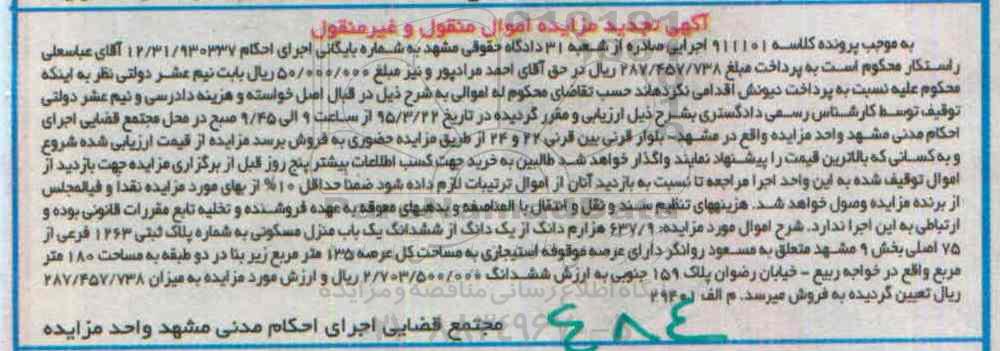 آگهی تجدید مزایده اموال منقول و غیرمنقول
به موجب پرونده کلاسه ۹۱۱۱۰۱ اجرایی صادره از شعبه ۳۱ دادگاه حقوقی مشهد به شماره بایگانی اجرای احکام ۱۲/۳۱/۹۳۰۳۳۷ آقای عباسعلی
راستکار محکوم است به پرداخت مبلغ ۲۸۷/۴۵۷/۷۳۸ ریال در حق آقای احمد مرادپور و نیز مبلغ ۵۰/۰۰۰/۰۰۰ ریال بابت نیم عشر دولتی نظر به اینکه
محکوم علیه نسبت به پرداخت دیونش اقدامی نکرده‌اند حسب تقاضای محکوم له اموالی به شرح ذیل در قبال اصل خواسته و هزینه دادرسی و نیم عشر دولتی
توقیف توسط کارشناس رسمی دادگستری بشرح ذیل ارزیابی و مقرر گردیده در تاریخ ۹۵/۳/۲۲ از ساعت ۹ الی ۹/۴۵ صبح در محل مجتمع قضایی اجرای
احکام مدنی مشهد واحد مزایده واقع در مشهد - بلوار قرنی بین قرنی ۲۲ و ۲۴ از طریق مزایده حضوری به فروش برسد مزایده از قیمت ارزیابی شده شروع
و به کسانی که بالاترین قیمت را پیشنهاد نمایند واگذار خواهد شد طالبین به خرید جهت کسب اطلاعات بیشتر پنج روز قبل از برگزاری مزایده جهت بازدید از
اموال توقیف شده به این واحد اجرا مراجعه تا نسبت به بازدید آنان از اموال ترتیبات لازم داده شود ضمنا حداقل ۱۰% از بهای مورد مزایده نقدا و فی‌المجلس
از برنده مزایده وصول خواهد شد. هزینه‌های تنظیم سند و نقل و انتقال با المناصفه و بدهیهای معوقه به عهده فروشنده و تخلیه تابع مقررات قانونی بوده و
ارتباطی به این اجرا ندارد. شرح اموال مورد مزایده: ۶۳۷/۹ هزارم دانگ از یک دانگ از ششدانگ یک باب منزل مسکونی به شماره پلاک ثبتی ۱۲۶۳ فرعی از
۷۵ اصلی بخش ۹ مشهد متعلق به مسعود روانگر دارای عرصه موقوفه استیجاری به مساحت کل عرصه ۱۳۵ متر مربع زیر بنا در دو طبقه به مساحت ۱۸۰ متر
مربع واقع در خواجه ربیع - خیابان رضوان پلاک ۱۵۹ جنوبی به ارزش ششدانگ ۲/۷۰۳/۵۰۰/۰۰۰ ریال و ارزش مورد مزایده به میزان ۲۸۷/۴۵۷/۷۳۸
ریال تعیین گردیده به فروش میرسد. م الف ۲۹۴۰۱
مجتمع قضایی اجرای احکام مدنی مشهد واحد مزایده
۴۸۴